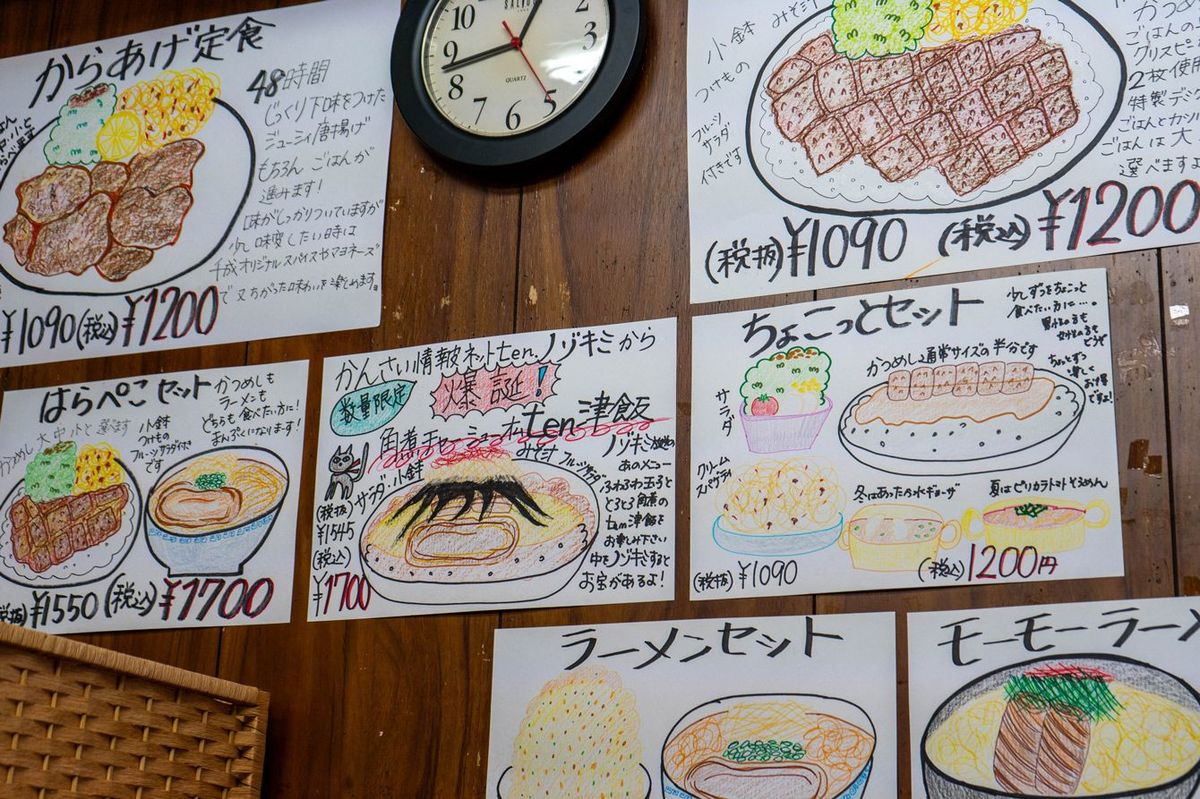 からあげ定食
48時間
じっくり下味をつけた
ジューシィ唐揚げ
もちろん ごはんが
進みます!
味がしっかりついていますが
少し味変したい時は
千成オリジナルスパイスやマヨネーズ
¥1090(税込)¥1200
10
9
8
7
6
5
2
QUARTZ
小鉢 みそ汁
つけもの
フルーツ
サラダ
付きです
かつめし
ごはんの
クリスピ
2枚使用
特製デミ
ごはんとカツ
ごはんは大
選べます
(税抜)¥1090 (税込)¥1200
はらぺこセット
かつめしも
ラーメンも
どちらも食べたい方に!
まんぷくになります!
かつめし大中小と選べます
小鉢
つけもの
フルーツサラダ付き
です
¥1550(税込)¥1700
かんさい情報ネットten.ノゾキミから
数量限定
爆誕!
ten津飯
みそ汁 フルーツサラダ
サラダ・小鉢
(税抜)
¥1545
(税込)
¥1700
ノゾキミ放送の
あのメニュー
ふわふわ玉子と
とろとろ角煮の
ten津飯を
お楽しみ下さい
中をノゾキミすると
お宝があるよ!
ちょこっとセット
少しずつをちょこっと
食べたい方に…。
かつめし2通常サイズの半分です
サラダ
クリーム
スパゲティ
冬はあったか水ギョーザ
(税抜)¥1090
(税込)1200円
ラーメンセット
モーモーラーメ